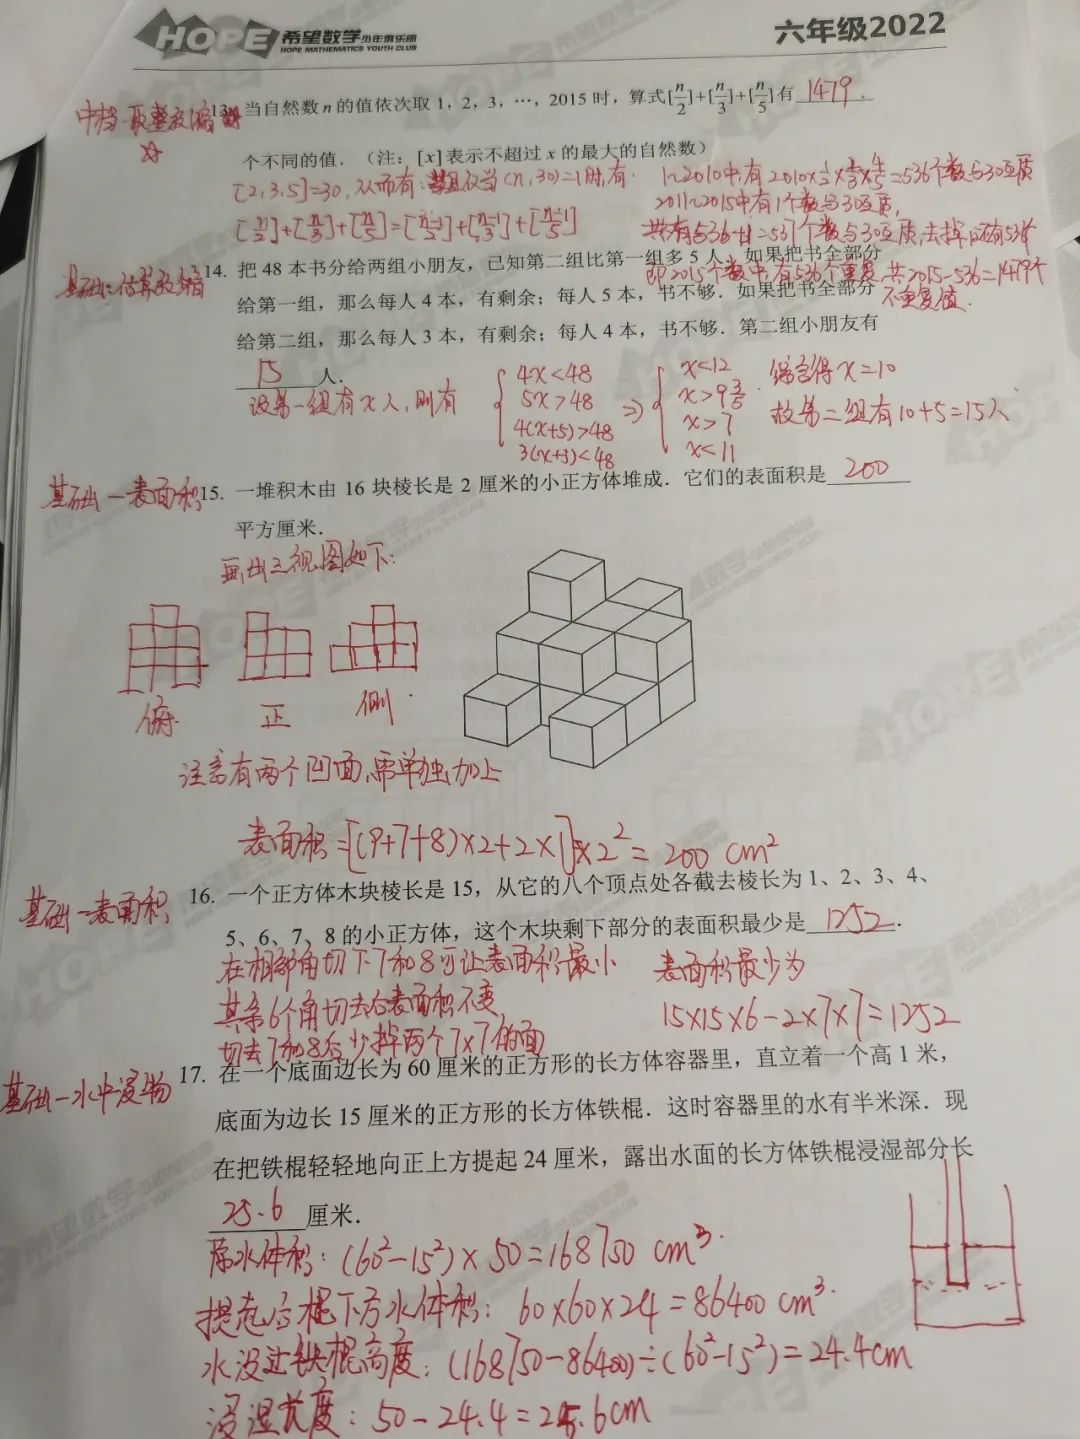 HOPE 希望数学 少年俱乐部
HOPE MATHEMATICS YOUTH CLUB
六年级2022
中档-取整及缩
13. 当自然数 n 的值依次取 1，2，3，…，2015 时，算式[n/2]+[n/3]+[n/5]有 1479 .
个不同的值．（注：[x]表示不超过 x 的最大的自然数）
[2,3,5]=30, 从而有: 当且仅当(n,30)=1时,有. 1~2010中,有2010×1/2×2/3×4/5=536个数与30互质
2011~2015中有1个数与30互质,
[n/2]+[n/3]+[n/5]=[n-1/2]+[n-1/3]+[n-1/5] 共有536+1=537个数与30互质,去掉1还有536个
即2015个数中,有536个重复,共2015-536=1479个
不重复值.
基础-估算及缩
14. 把 48 本书分给两组小朋友，已知第二组比第一组多 5 人．如果把书全部分
给第一组，那么每人 4 本，有剩余；每人 5 本，书不够．如果把书全部分
给第二组，那么每人 3 本，有剩余；每人 4 本，书不够．第二组小朋友有
15 人．
设第一组有x人,则有 { 4x<48 5x>48 4(x+5)>48 3(x+5)<48 ⇒ { x<12 x>9 3/5 x>7 x<11 . 综合得x=10
故第二组有10+5=15人
基础-表面积
15. 一堆积木由 16 块棱长是 2 厘米的小正方体堆成．它们的表面积是 200
平方厘米．
画出三视图如下:
俯. 正 侧.
注意有两个凹面,需单独加上
表面积=[(9+7+8)×2+2×1]×2²=200 cm²
基础-表面积
16. 一个正方体木块棱长是 15，从它的八个顶点处各截去棱长为 1、2、3、4、
5、6、7、8 的小正方体，这个木块剩下部分的表面积最少是 1252 ．
在相邻角切下7和8可让表面积最小 表面积最少为
其余6个角切去后表面积不变 15×15×6-2×7×7=1252
切去7和8后,少掉两个7×7的面
基础-水中浸物
17. 在一个底面边长为 60 厘米的正方形的长方体容器里，直立着一个高 1 米，
底面为边长 15 厘米的正方形的长方体铁棍．这时容器里的水有半米深．现
在把铁棍轻轻地向正上方提起 24 厘米，露出水面的长方体铁棍浸湿部分长
25.6 厘米．
原水体积: (60²-15²)×50=168750 cm³.
提起后棍下方水体积: 60×60×24=86400 cm³.
水没过铁棍高度: (168750-86400)÷(60²-15²)=24.4cm
浸湿长度: 50-24.4=25.6cm